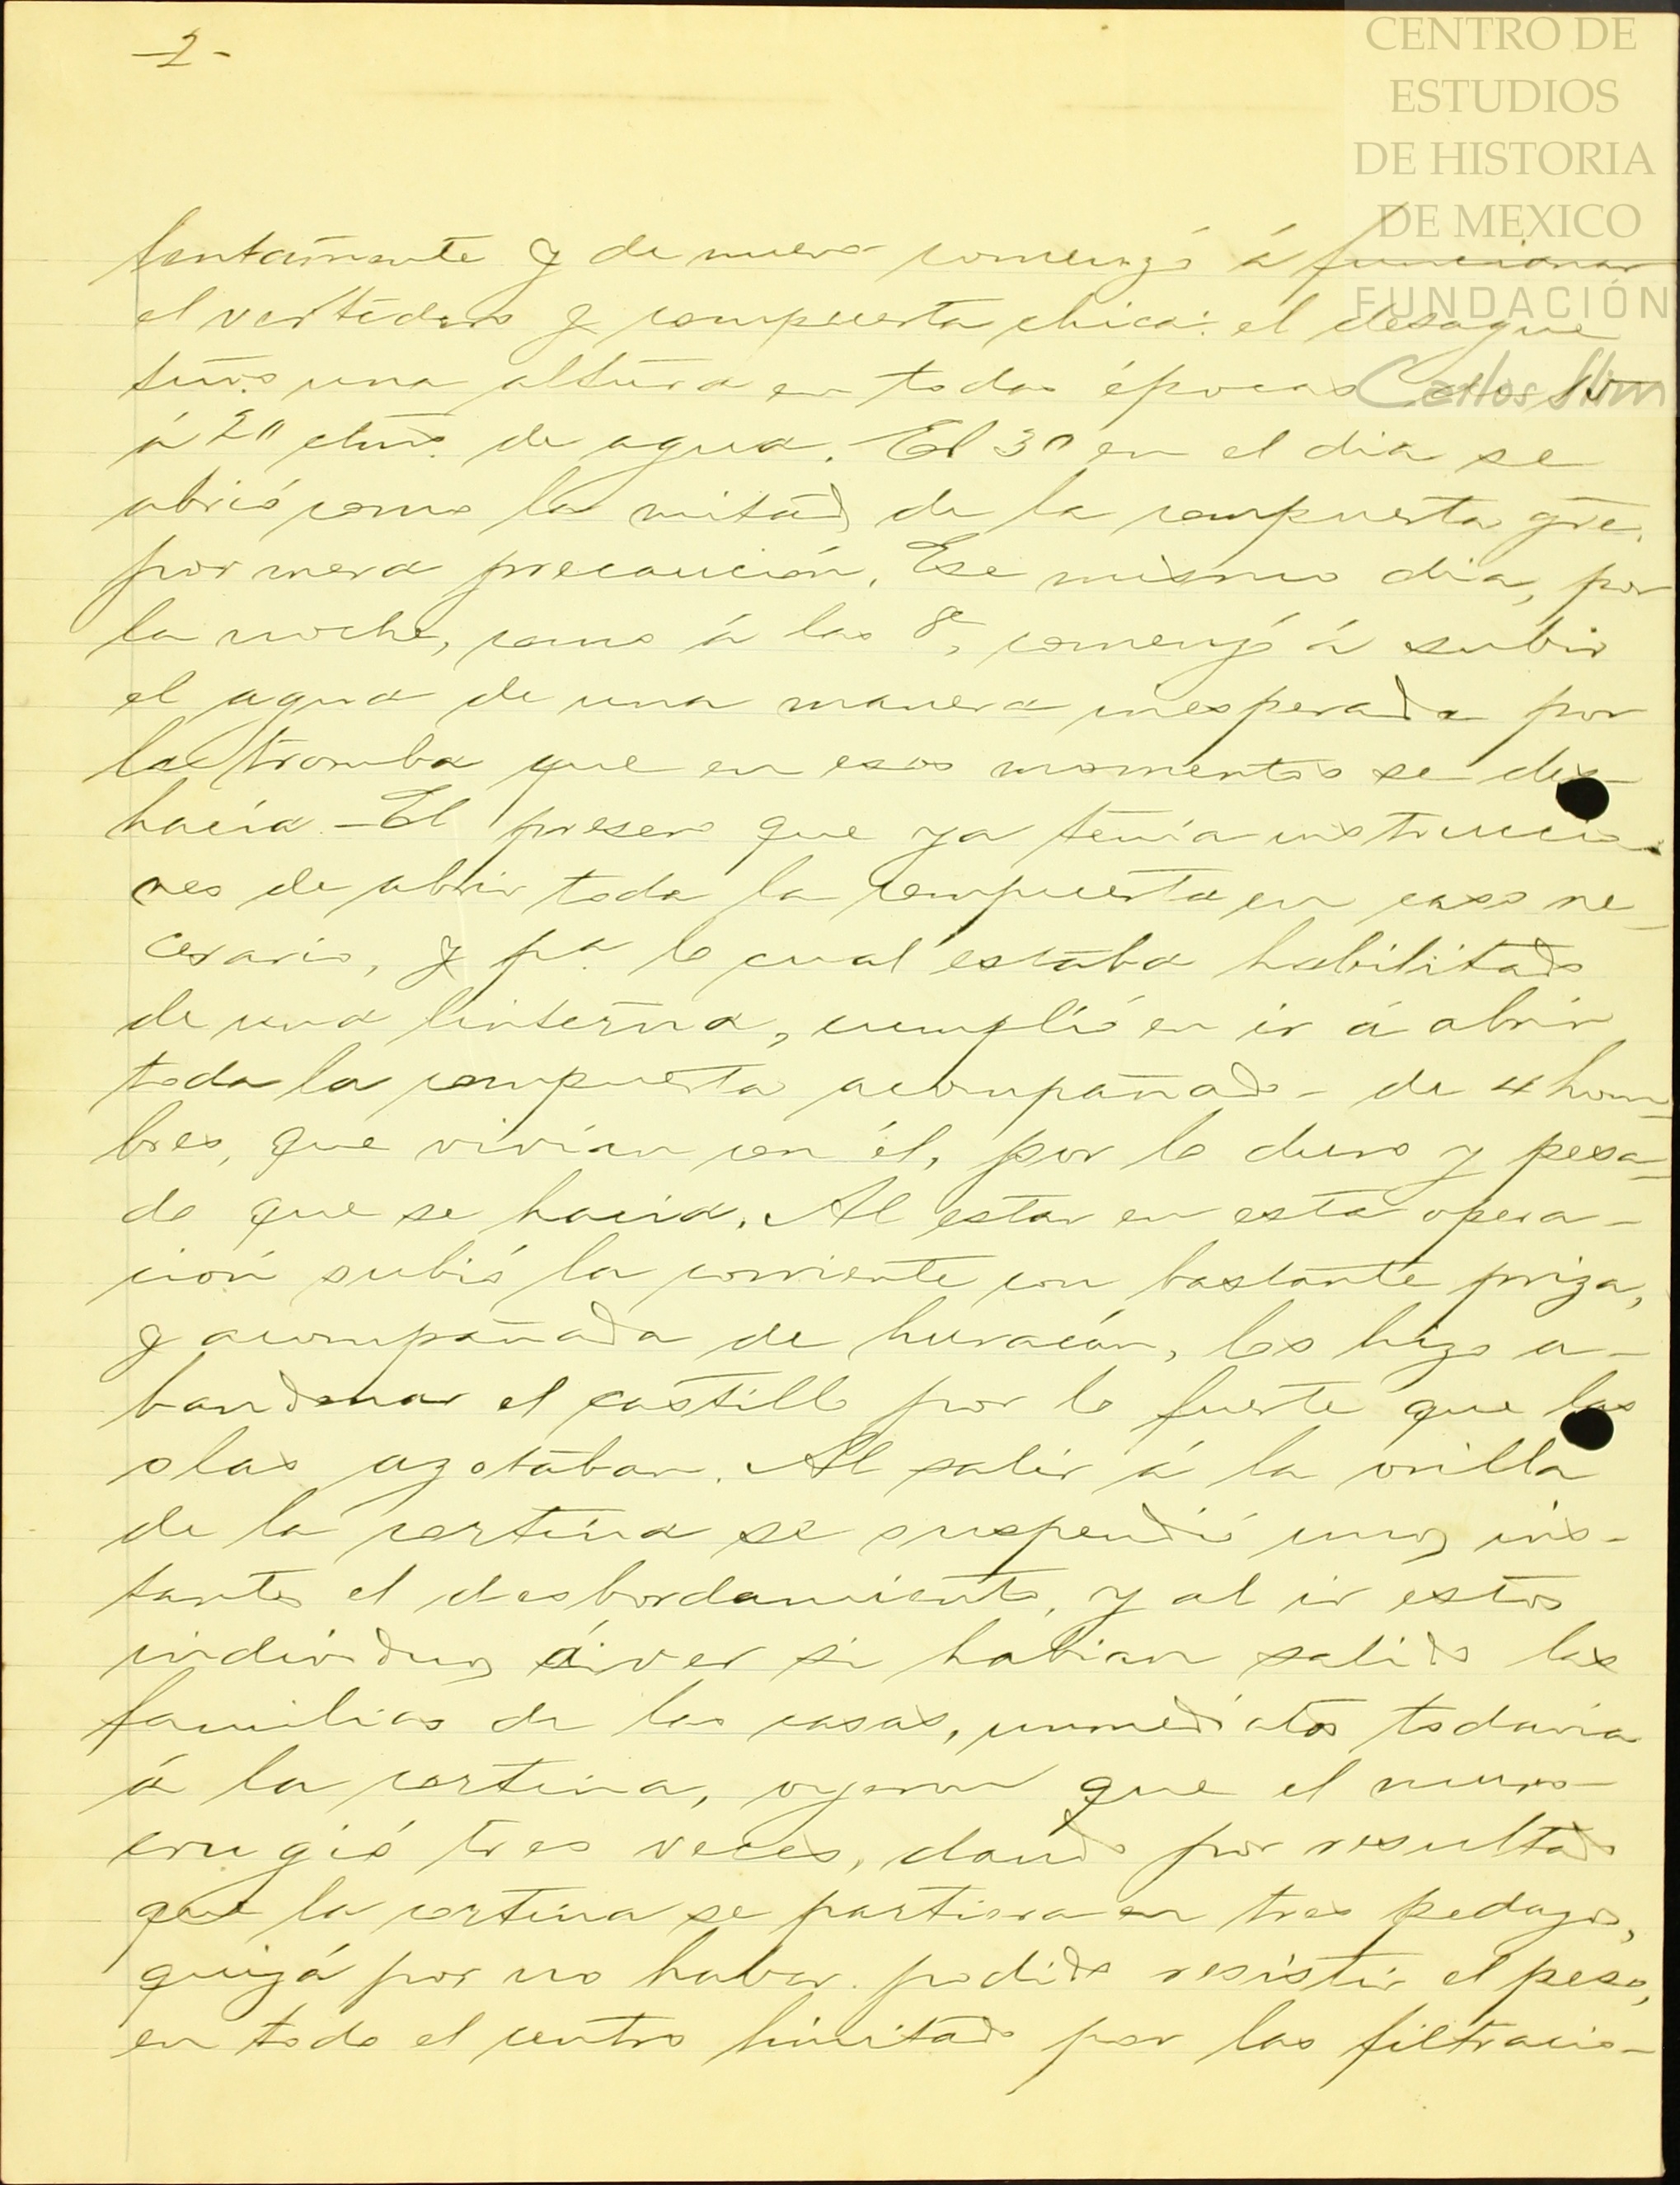 -2-
CENTRO DE
ESTUDIOS
DE HISTORIA
DE MEXICO
FUNDACIÓN
Carlos Slim
lentamente y de nuevo comenzó á funcionar
el vertedero y compuerta chica: el desague
tuvo una altura en todas épocas de 15
á 20 ctms. de agua. El 30 en el dia se
abrió como la mitad de la compuerta gre.
por mera precaución. Ese mismo dia, por
la noche, como á las 8, comenzó á subir
el agua de una manera inesperada por
la tromba que en esos momentos se des-
hacía - El presero que ya tenía instruccio-
nes de abrir toda la compuerta en caso ne-
cesario, y pa. lo cual estaba habilitado
de una linterna, cumplió en ir á abrir
toda la compuerta acompañado - de 4 hom-
bres, que vivían con él, por lo duro y pesa-
do que se hacía. Al estar en esta opera-
ción subió la corriente con bastante priza,
y acompañada de huracán, los hizo a-
bandonar el castillo por lo fuerte que las
olas azotaban. Al salir á la orilla
de la cortina se suspendió unos ins-
tantes el desbordamiento, y al ir estos
individuos á ver si habian salido las
familias de las casas, inmediatos todavía
á la cortina, oyeron que el muro
crugió tres veces, dando por resultado
que la cortina se partiera en tres pedazos,
quizá por no haber podido resistir el peso,
en todo el centro limitado por las filtracio-